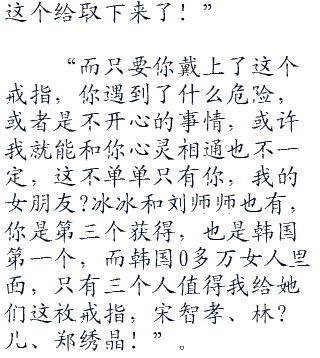 这个给取下来了！”
“而只要你戴上了这个
戒指，你遇到了什么危险，
或者是不开心的事情，或许
我就能和你心灵相通也不一
定，这不单单只有你，我的
女朋友?冰冰和刘师师也有，
你是第三个获得，也是韩国
第一个，而韩国0多万女人里
面，只有三个人值得我给她
们这枚戒指，宋智孝、林?
儿、郑绣晶！”。